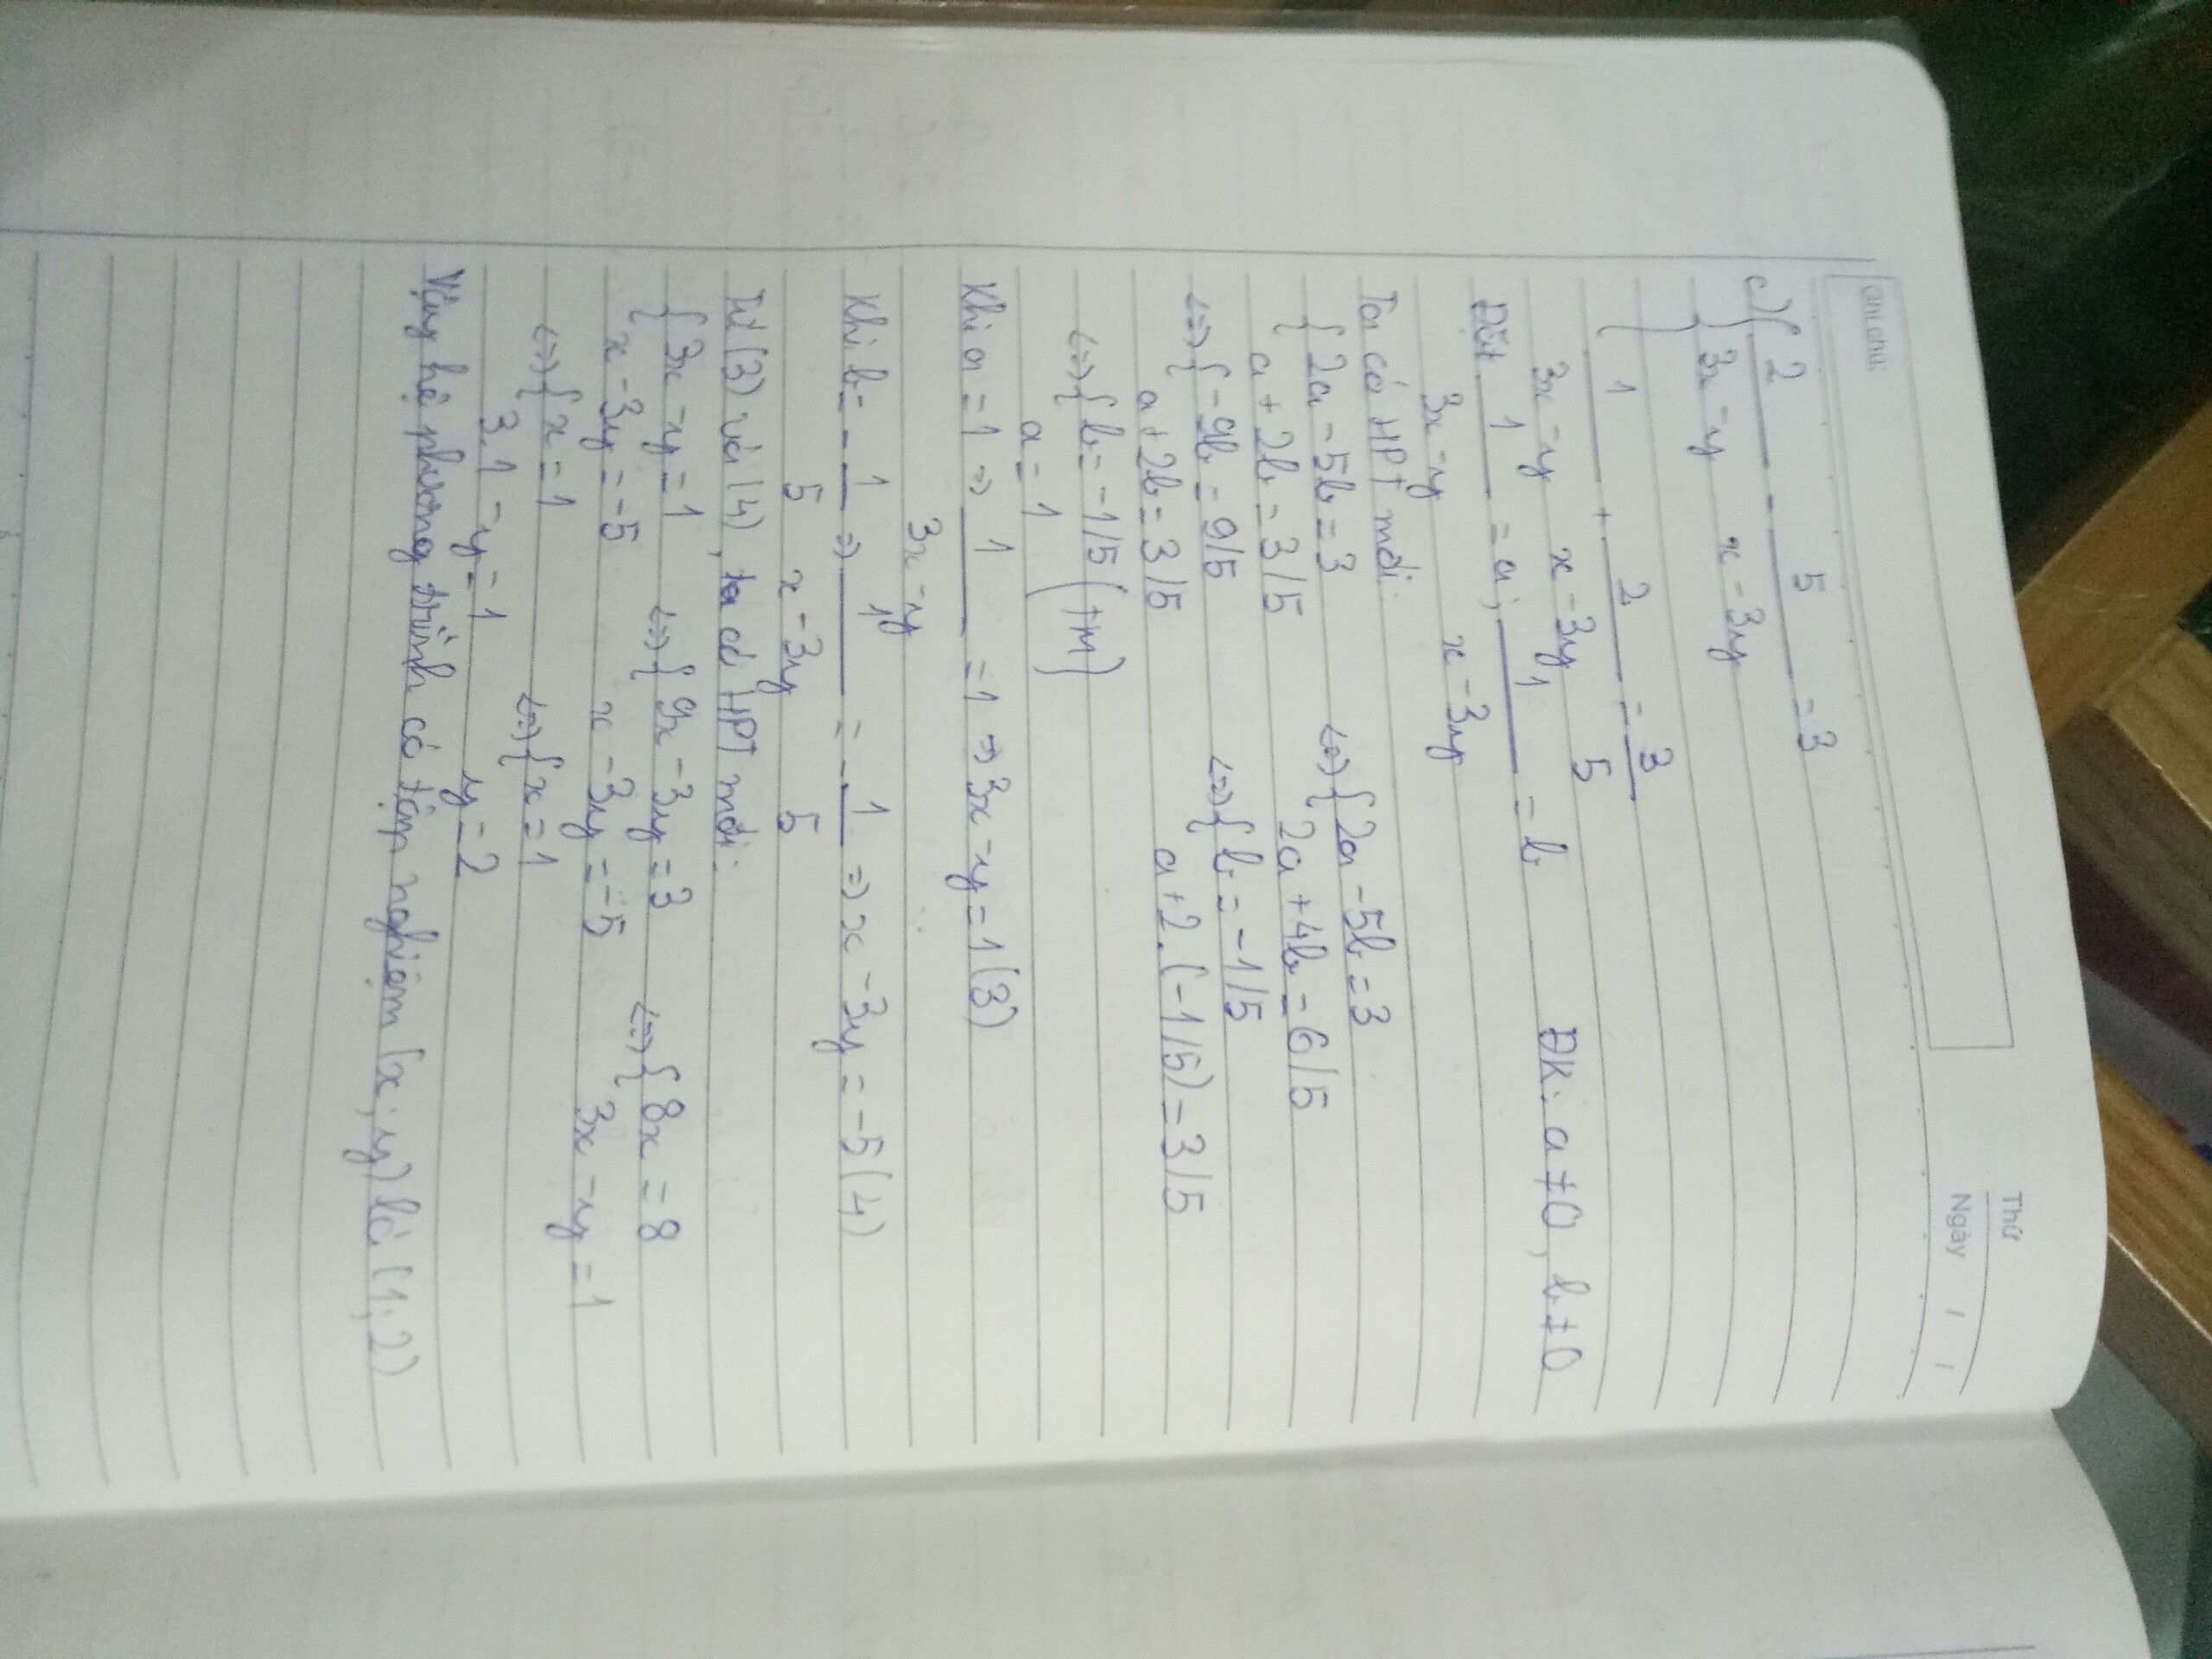 Ghi chú:
Thứ
Ngày / /
c) { 2/(3x-y) - 5/(x-3y) = 3
{ 1/(3x-y) + 2/(x-3y) = 3/5
Đặt 1/(3x-y) = a; 1/(x-3y) = b ĐK: a≠0, b≠0
Ta có HPT mới:
{ 2a-5b=3 <=> { 2a-5b=3
a+2b=3/5 2a+4b=6/5
<=> { -9b=9/5 <=> { b=-1/5
a+2b=3/5 a+2.(-1/5)=3/5
<=> { b=-1/5 (TM)
a=1
Khi a=1 => 1/(3x-y) = 1 => 3x-y=1 (3)
Khi b=-1/5 => 1/(x-3y) = -1/5 => x-3y=-5 (4)
Từ (3) và (4), ta có HPT mới:
{ 3x-y=1 <=> { 9x-3y=3 <=> { 8x=8
x-3y=-5 x-3y=-5 3x-y=1
<=> { x=1 <=> { x=1
3.1-y=1 y=2
Vậy hệ phương trình có tập nghiệm (x;y) là (1;2)